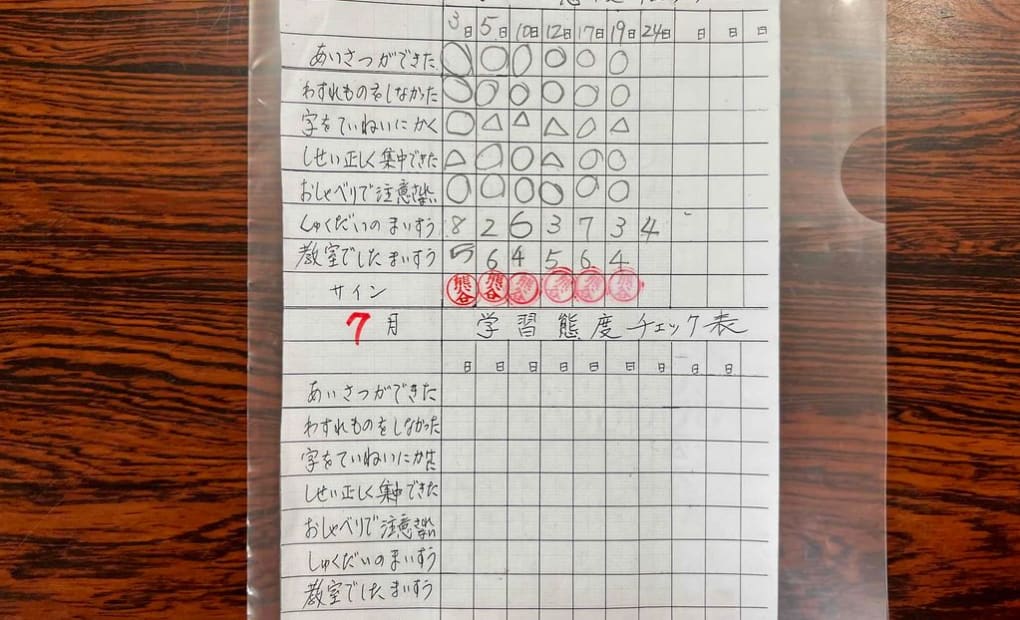 3日 5日 10日 12日 17日 19日 24日 日 日 日
あいさつができた ○ ○ ○ ○ ○ ○
わすれものをしなかった ○ ○ ○ ○ ○ ○
字をていねいにかく ○ △ △ △ ○ △
しせい正しく集中できた △ ○ ○ △ ○ ○
おしゃべりで注意されない ○ ○ ○ ○ ○ ○
しゅくだいのまいすう 8 2 6 3 7 3 4
教室でしたまいすう 5 6 4 5 6 4
サイン 熊谷 熊谷 熊谷 熊谷 熊谷 熊谷
7月 学習態度チェック表
日 日 日 日 日 日 日 日 日
あいさつができた
わすれものをしなかった
字をていねいにかけた
しせい正しく集中できた
おしゃべりで注意されない
しゅくだいのまいすう
教室でしたまいすう